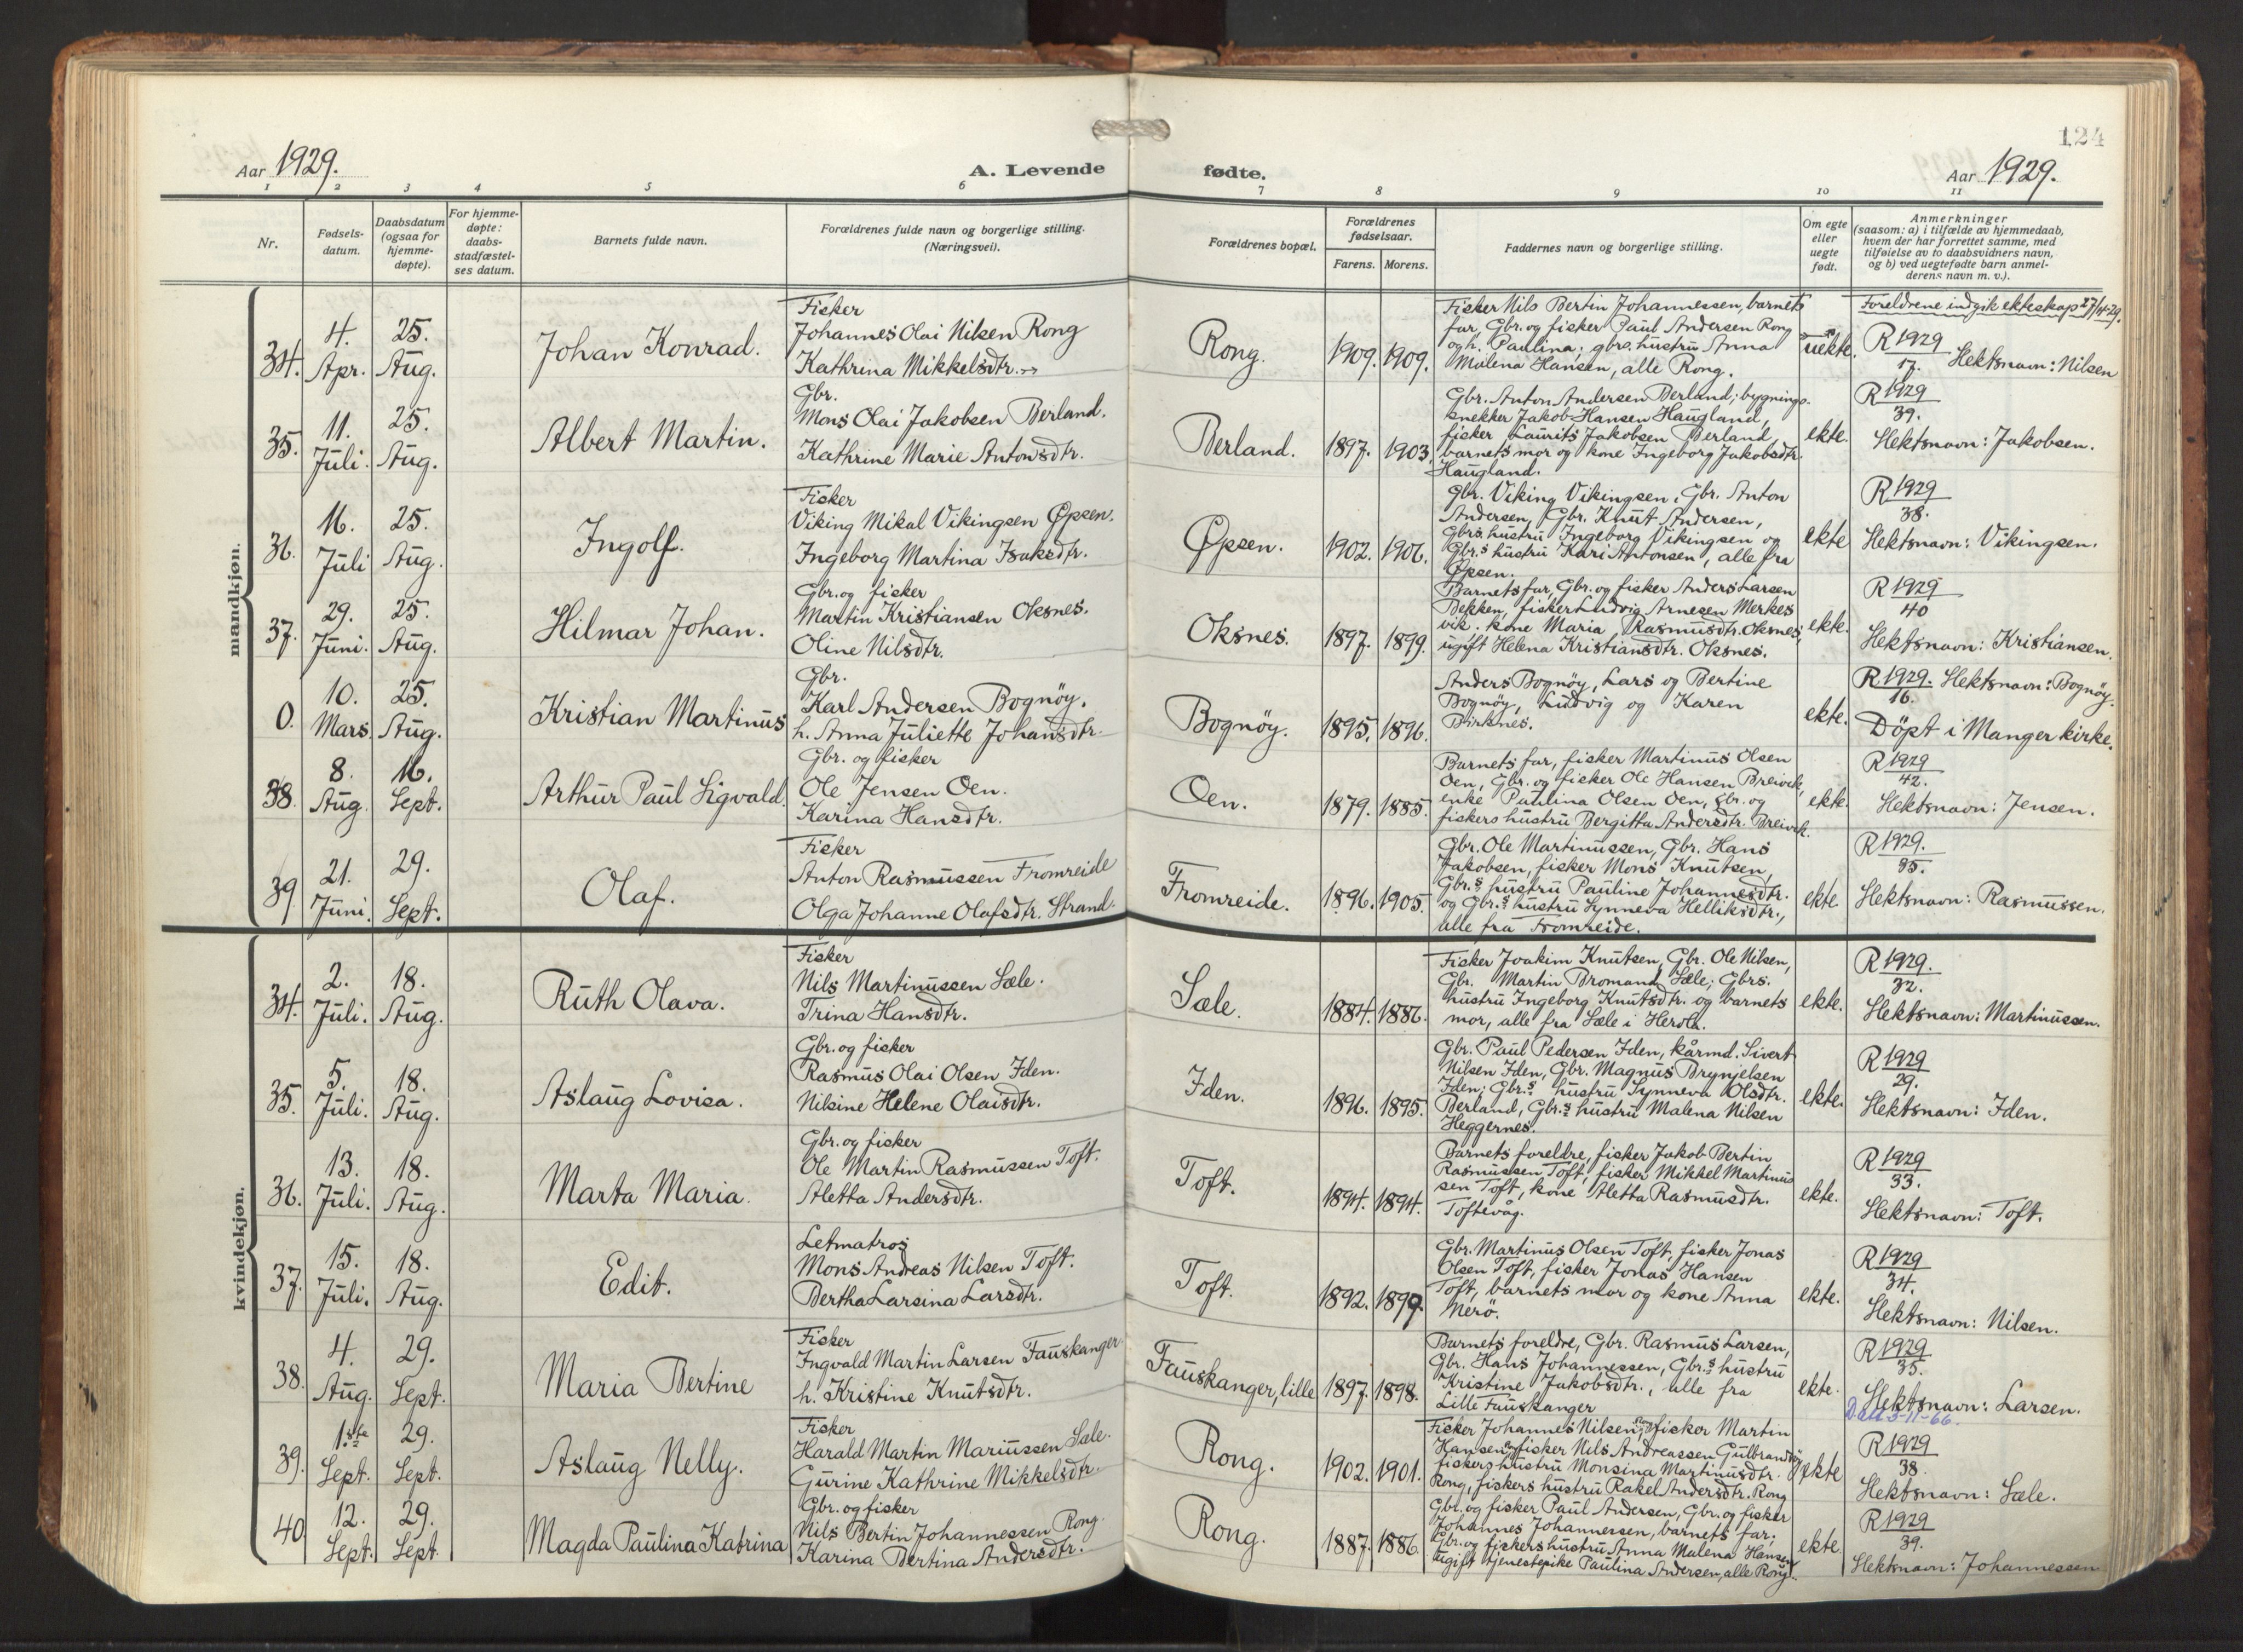 124
Aar 1929.
A. Levende
fødte.
Aar 1929.
1 2 3 4 5 6 7 8 9 10 11
Nr.
Fødsels-
datum.
Daabsdatum
(ogsaa for
hjemme-
døpte).
For hjemme-
døpte:
daabs-
stadfæstel-
ses datum.
Barnets fulde navn.
Forældrenes fulde navn og borgerlige stilling.
(Næringsvei).
Forældrenes bopæl.
Forældrenes
fødselsaar.
Farens. Morens.
Faddernes navn og borgerlige stilling.
Om egte
eller
uegte
født.
Anmerkninger
(saasom: a) i tilfælde av hjemmedaab,
hvem der har forrettet samme, med
tilføielse av to daabsvidners navn,
og b) ved uegtefødte barn anmel-
derens navn m. v.).
mandkjøn.
34.
4.
Apr.
25.
Aug.
Johan Konrad.
Fisker
Johannes Olai Nilsen Rong
Kathrina Mikkelsdtr.
Rong.
1909. 1909.
Fisker Nils Bertin Johannessen, barnets
far, Gbr. og fisker Paul Andersen Rong
og h. Paulina, gbrs. hustru Anna
Malena Hansen, alle Rong.
uekte.
Foreldrene indgik ekteskap 27/4-29.
R 1929
17.
Slektsnavn: Nilsen
35.
11.
Juli.
25.
Aug.
Albert Martin.
Gbr.
Mons Olai Jakobsen Berland.
Kathrine Marie Antonsdtr.
Berland.
1897. 1903.
Gbr. Anton Andersen Berland, bygnings-
snekker Jakob Hansen Haugland,
fisker Laurits Jakobsen Berland,
barnets mor og kone Ingeborg Jakobsdtr.
Haugland.
ekte.
R 1929
39.
Slektsnavn: Jakobsen.
36.
16.
Juli
25.
Aug.
Ingolf.
Fisker
Viking Mikal Vikingsen Øpsen.
Ingeborg Martina Isaksdtr.
Øpsen.
1902. 1906.
Gbr. Viking Vikingsen, Gbr. Anton
Andersen, Gbr. Knut Andersen,
Gbrs. hustru Ingeborg Vikingsen og
Gbr.s hustru Kari Antonsen, alle fra
Øpsen.
ekte
R 1929
38.
Slektsnavn: Vikingsen.
37.
29.
Juni.
25.
Aug.
Hilmar Johan.
Gbr. og fisker
Martin Kristiansen Oksnes.
Oline Nilsdtr.
Oksnes.
1897. 1899.
Barnets far, Gbr. og fisker Anders Larsen
Bekken, fisker Ludvig Arnesen Merkes
vik. kone Maria Rasmusdtr. Oksnes,
ugift Helena Kristiansdtr. Oksnes.
ekte.
R 1929
40
Slektsnavn: Kristiansen.
0.
10.
Mars.
25.
Aug.
Kristian Martinus
Gbr.
Karl Andersen Bognöy.
h. Anna Juliette Johansdtr.
Bognöy.
1895. 1896.
Anders Bognöy, Lars og Bertine
Bognöy, Ludvig og Karen
Birknes.
ekte.
R 1929. Slektsnavn: Bognöy.
16.
Döpt i Manger kirke.
38.
8.
Aug.
16.
Sept.
Arthur Paul Sigvald.
Gbr. og fisker
Ole Jensen Oen.
Karina Hansdtr.
Oen.
1879. 1885.
Barnets far, fisker Martinus Olsen
Oen, Gbr. og fisker Ole Hansen Breivik,
enke Paulina Olsen Oen, gbr. og
fiskers hustru Bergitta Andersdtr. Breivik.
ekte.
R 1929
42.
Slektsnavn: Jensen.
39
21.
Juni.
29.
Sept.
Olaf.
Fisker
Anton Rasmussen Fromreide
Olga Johanne Olafsdtr. Strand.
Fromreide.
1896. 1905.
Gbr. Ole Martinussen, Gbr. Hans
Jakobsen, fisker Mons Knutsen,
Gbr.s hustru Pauline Johannesdtr.
og Gbr.s hustru Synneva Helliksdtr.,
alle fra Fromreide.
ekte.
R 1929.
35.
Slektsnavn: Rasmussen.
kvindekjøn.
34.
2.
Juli.
18.
Aug.
Ruth Olava.
Fisker
Nils Martinussen Sæle.
Trina Hansdtr.
Sæle.
1884. 1886.
Fisker Joakim Knutsen, Gbr. Ole Nilsen,
Gbr. Martin Bromand Sæle; Gbrs.
hustru Ingeborg Knutsdtr. og barnets
mor, alle fra Sæle i Herdla.
ekte.
R 1929.
32.
Slektsnavn: Martinussen.
35.
5.
Juli.
18.
Aug.
Aslaug Lovisa.
Gbr. og fisker
Rasmus Olai Olsen Iden.
Nilsine Helene Olaisdtr.
Iden.
1896. 1895.
Gbr. Paul Pedersen Iden, kårmd. Sivert
Nilsen Iden, Gbr. Magnus Brynjelsen
Iden; Gbr.s hustru Synneva Olsdtr.
Berland, Gbr.s hustru Malena Nilsen
Heggernes.
ekte.
R 1929
29.
Slektsnavn: Iden.
36.
13.
Juli.
18.
Aug.
Marta Maria.
Gbr. og fisker
Ole Martin Rasmussen Toft.
Aletta Andersdtr.
Toft.
1894. 1894.
Barnets foreldre, fisker Jakob Bertin
Rasmussen Toft, fisker Mikkel Martinus
sen Toft, kone Aletta Rasmusdtr.
Toftevåg.
ekte.
R 1929
33.
Slektsnavn: Toft.
37.
15.
Juli.
18.
Aug.
Edit.
Letmatros
Mons Andreas Nilsen Toft.
Bertha Larsina Larsdtr.
Toft.
1892. 1899.
Gbr. Martinus Olsen Toft, fisker Jonas
Olsen Toft, fisker Jonas Hansen
Toft, barnets mor og kone Anna
Nerö.
ekte.
R 1929
34.
Slektsnavn: Nilsen.
38.
4.
Aug.
29.
Sept.
Maria Bertine
Fisker
Ingvald Martin Larsen Fauskanger.
h. Kristine Knutsdtr.
Fauskanger, lille
1897. 1898.
Barnets foreldre, Gbr. Rasmus Larsen,
Gbr. Hans Johannessen, Gbr.s hustru
Kristine Jakobsdtr., alle fra
Lille Fauskanger
ekte.
R 1929
35.
Slektsnavn: Larsen.
39.
1ste
Sept.
29.
Sept.
Aslaug Nelly.
Fisker
Harald Martin Mariussen Sæle.
Gurine Kathrine Mikkelsdtr.
Rong.
1902. 1901.
Fisker Johannes Nilsen, fisker Martin
Hansen, fisker Nils Andreassen Gulbrandsöy
fiskers hustru Monsina Martinusdtr.
Rong, fiskers hustru Rakel Andersdtr. Rong
ekte
5-11-66.
R 1929
38.
Slektsnavn: Sæle.
40.
12.
Sept.
29.
Sept.
Magda Paulina Katrina
Gbr. og fisker
Nils Bertin Johannessen Rong.
Karina Bertina Andersdtr.
Rong.
1887. 1886.
Gbr. og fisker Paul Andersen, Gbr. og fisker
Johannes Johannessen, barnets far;
Gbr. og fiskers hustru Anna Malena Hansen
ugift tjenestepike Paulina Andersen, alle Rong.
ekte.
R 1929
39.
Slektsnavn: Johannessen